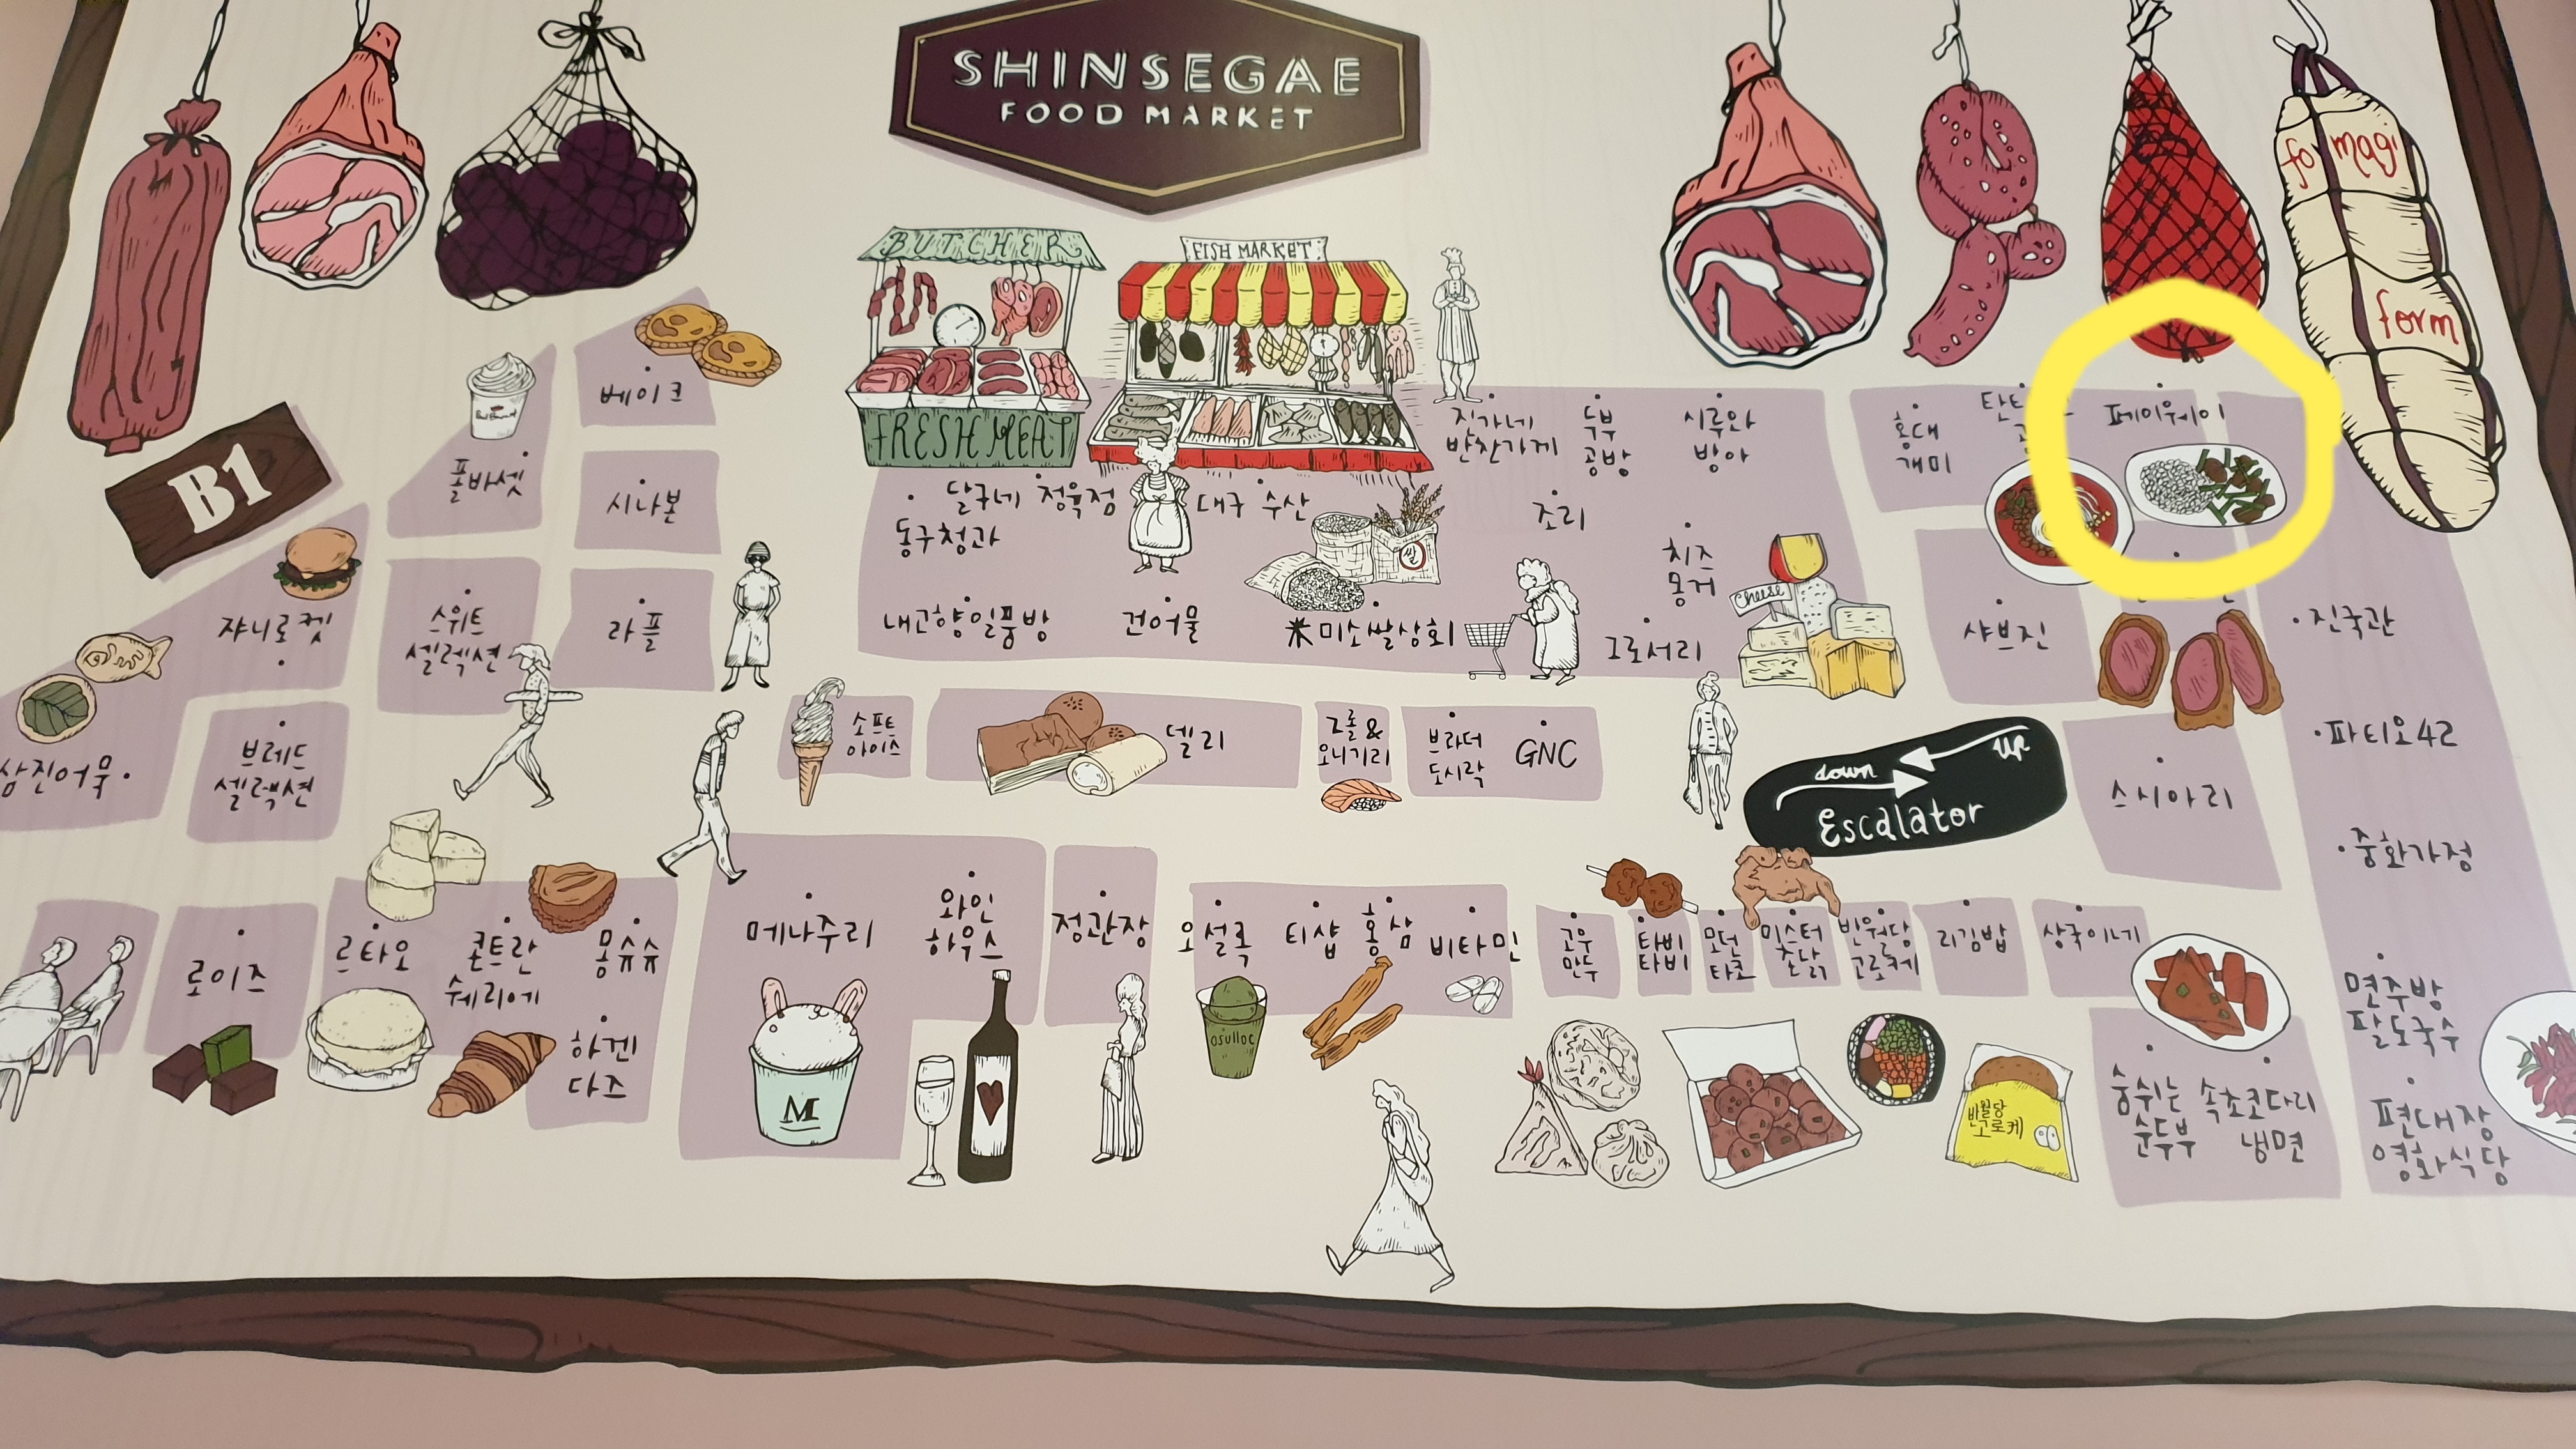 SHINSEGAE
FOOD MARKET
fo magi
form
B1
BUTCHER
FRESH MEAT
FISH MARKET
베이크
폴바셋
시나본
쟈니로켓
스위트
셀렉션
라플
삼진어묵
브레드
셀렉션
달구네 정육점
동구청과
대구 수산
내고향일품방
건어물
米미소쌀상회
쌀
진가네
반찬가게
두부
공방
시루와
방아
조리
치즈
몽거
Cheese
그로서리
홍대
개미
페이웨이
샤브진
진국관
파티오42
스시아리
중화가정
소프트
아이스
델리
그롤&
오니기리
브라더
도시락
GNC
down
up
Escalator
로이즈
르타오
콘트란
쉐리에
몽슈슈
하겐
다즈
메나주리
M
와인
하우스
정관장
오설록
osulloc
티샵
홍삼
비타민
고우
만두
타비
타비
모던
타코
미스터
초닭
반월당
고로케
리김밥
상국이네
반월당
고로케
면주방
팔도국수
숨쉬는
순두부
속초코다리
냉면
편대장
영화식당